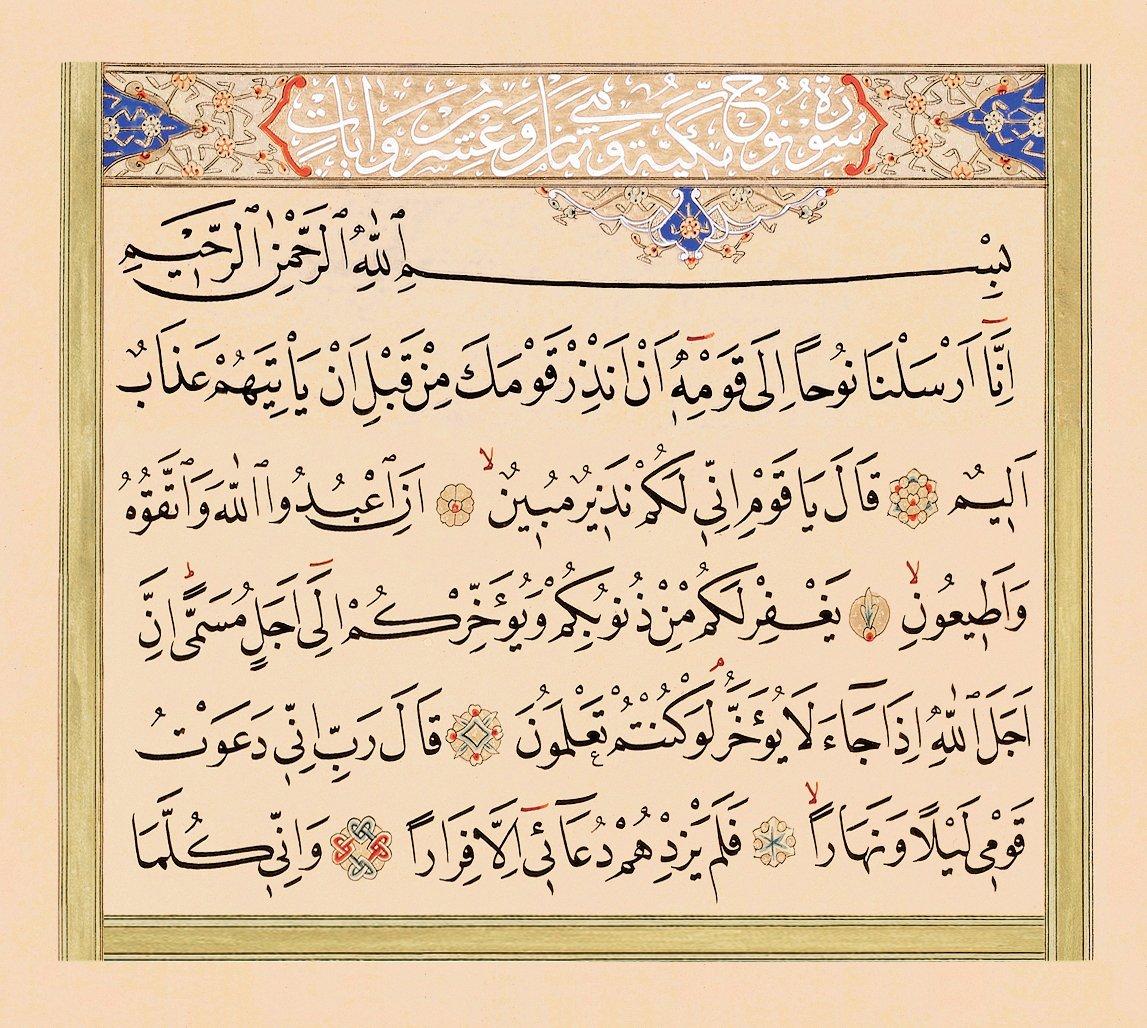 سُورَةُ نُوحٍ مَكِّيَّةٌ وَهِيَ ثَمَانٍ وَعِشْرُونَ اٰيَاتٍ
بِسْمِ ٱللّٰهِ ٱلرَّحْمٰنِ ٱلرَّحٖيمِ
اِنَّٓا اَرْسَلْنَا نُوحًا اِلٰى قَوْمِهٖٓ اَنْ اَنْذِرْ قَوْمَكَ مِنْ قَبْلِ اَنْ يَأْتِيَهُمْ عَذَابٌ
اَلٖيمٌ ۝ قَالَ يَا قَوْمِ اِنّٖى لَكُمْ نَذٖيرٌ مُبٖينٌۙ ۝ اَنِ ٱعْبُدُوا ٱللّٰهَ وَٱتَّقُوهُ
وَاَطٖيعُونِۙ ۝ يَغْفِرْ لَكُمْ مِنْ ذُنُوبِكُمْ وَيُؤَخِّرْكُمْ اِلٰٓى اَجَلٍ مُسَمًّىۜ اِنَّ
اَجَلَ ٱللّٰهِ اِذَا جَٓاءَ لَا يُؤَخَّرُۢ لَوْ كُنْتُمْ تَعْلَمُونَ ۝ قَالَ رَبِّ اِنّٖى دَعَوْتُ
قَوْمٖى لَيْلًا وَنَهَارًاۙ ۝ فَلَمْ يَزِدْهُمْ دُعَٓائٖٓى اِلَّا فِرَارًا ۝ وَاِنّٖى كُلَّمَا